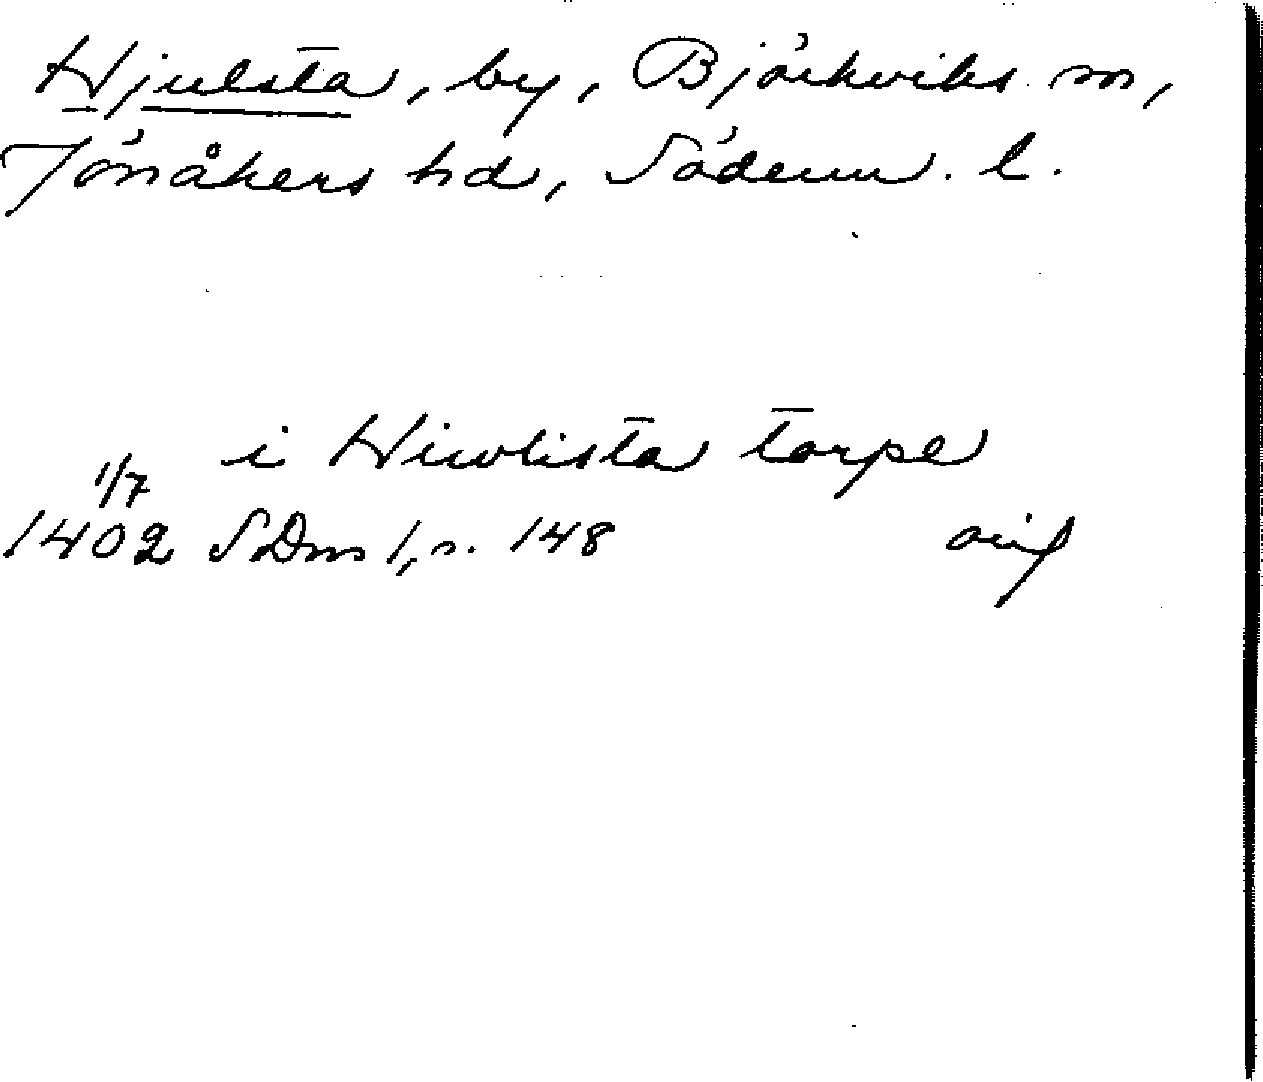 Hjulsta, by, Björkviks sn,
Jönåkers hd, Söderm. l.
i Hiwlista torpe
1/7
1402 SDns 1, s. 148 orig